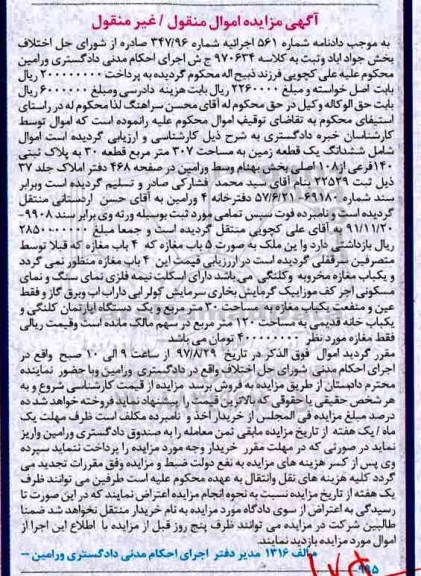 آگهی مزایده اموال منقول / غیر منقول
به موجب دادنامه شماره ۵۶۱ اجرائیه شماره ۳۴۷/۹۶ صادره از شورای حل اختلاف
بخش جواد اباد وثبت به کلاسه ۹۷۰۶۳۴ ج ش اجرای احکام مدنی دادگستری ورامین
محکوم علیه علی کچویی فرزند ذبیح اله محکوم گردیده به پرداخت ۲۰۰۰۰۰۰۰۰ ریال
بابت اصل خواسته و مبلغ ۲۲۶۰۰۰۰ ریال بابت هزینه دادرسی ومبلغ ۶۰۰۰۰۰۰ ریال
بابت حق الوکاله وکیل در حق محکوم له آقای محسن سراهنگ لذا محکوم له در راستای
استیفای محکوم به تقاضای توقیف اموال محکوم علیه رانموده است که اموال توسط
کارشناسان خبره دادگستری به شرح ذیل کارشناسی و ارزیابی گردیده است اموال
شامل ششدانگ یک قطعه زمین به مساحت ۳۰۷ متر مربع قطعه ۳۰ به پلاک ثبتی
۱۴۰فرعی از۱۰۸ اصلی بخش بهنام وسط ورامین در صفحه ۴۶۸ دفتر املاک جلد ۳۷
ذیل ثبت ۲۲۵۲۹ بنام آقای سید محمد فشارکی صادر و تسلیم گردیده است وبرابر
سند شماره ۶۹۱۸۰-۵۷/۶/۲۱ دفترخانه ۴ ورامین به آقای حسن اردستانی منتقل
گردیده است و نامبرده فوت سپس تمامی مورد ثبت بوسیله ورثه وی برابر سند ۹۹۰۸-
۹۱/۱۱/۲۰ به آقای علی کچویی منتقل گردیده است و جمعا مبلغ ۲۸۵۰۰۰۰۰۰۰
ریال بازداشتی دارد وا ین ملک به صورت ۵ باب مغازه که ۴ باب مغازه که قبلا توسط
متصرفین سرقفلی گردیده است در ارزیابی قیمت این ۴ باب مغازه منظور نمی گردد
و یکباب مغازه مخروبه و کلنگی می‌باشد دارای اسکلت نیمه فلزی نمای سنگ و نمای
مسکونی اجر کف موزاییک گرمایش بخاری سرمایش کولر ابی داراب اب وبرق گاز و فقط
عین و منفعت یکباب مغازه به مساحت ۲۰متر مربع و یک دستگاه اپارتمان کلنگی و
یکباب خانه قدیمی به مساحت ۱۲۰ متر مربع در سهم مالک مانده است وقیمت ریالی
فقط مغازه مورد نظر ۴۰۰۰۰۰۰۰۰ تومان می باشد
مقرر گردید اموال فوق الذکر در تاریخ ۹۷/۸/۲۹ از ساعت ۹ الی ۱۰ صبح واقع در
اجرای احکام مدنی شورای حل اختلاف واقع در دادگستری ورامین وبا حضور نماینده
محترم دادستان از طریق مزایده به فروش برسد مزایده از قیمت کارشناسی شروع و به
هر شخص حقیقی یا حقوقی که بالاترین قیمت را پیشنهاد نماید فروخته خواهد شد ده
درصد مبلغ مزایده فی المجلس از خریدار اخذ و نامبرده مکلف است ظرف مهلت یک
ماه / یک هفته از تاریخ مزایده مابقی ثمن معامله را به صندوق دادگستری ورامین واریز
نماید در صورتی که در مهلت مقرر خریدار وجه مورد مزایده را پرداخت ننماید سپرده
وی پس از کسر هزینه های مزایده به نفع دولت ضبط و مزایده وفق مقررات تجدید می
گردد کلیه هزینه های نقل وانتقال به عهده محکوم علیه است طرفین می توانند ظرف
یک هفته از تاریخ مزایده نسبت به نحوه انجام مزایده اعتراض نمایند که در این صورت تا
رسیدگی به اعتراض از سوی دادگاه مورد مزایده به نام خریدار منتقل نخواهد شد ضمنا
طالبین شرکت در مزایده می توانند ظرف پنج روز قبل از مزایده با اطلاع این اجرا از
اموال مورد مزایده بازدید نمایند.
م الف ۱۳۱۶ مدیر دفتر اجرای احکام مدنی دادگستری ورامین –